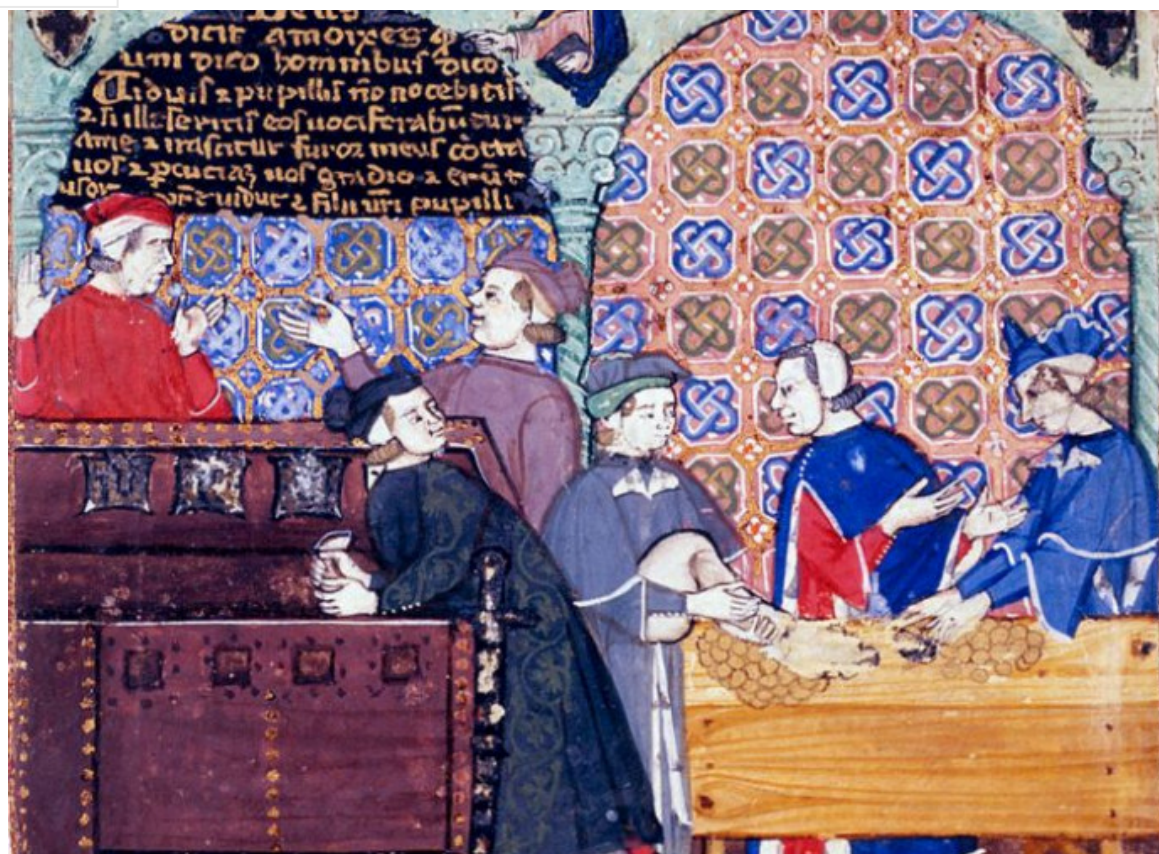 Deus
dicit amoixes
uni dico hominibus dico
Uiduis ⁊ pupillis nō nocebitis
⁊ si leseritis eos uociferabūtur
⁊ irascitur furor meus
uos ⁊ uos gladio ⁊ erūt
uidue ⁊ filii uri pupilli